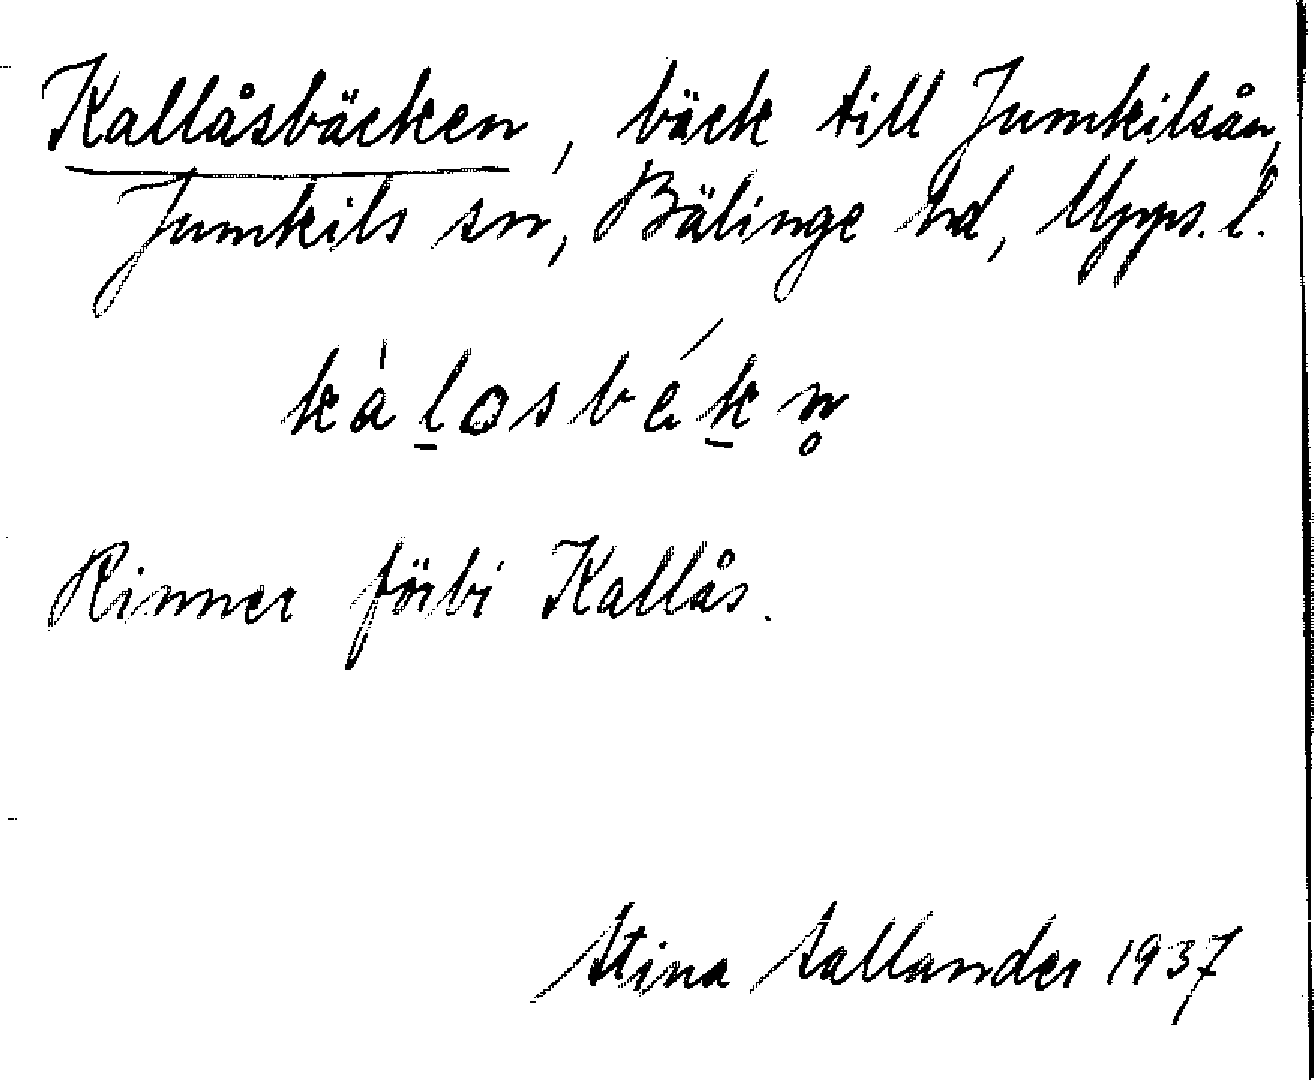 Kallåsbäcken, bäck till Jumkilsån,
Jumkils sn, Bälinge hd, Upps. l.
kàl̠osbék̠n̥
Rinner förbi Kallås.
Stina Sallander 1937